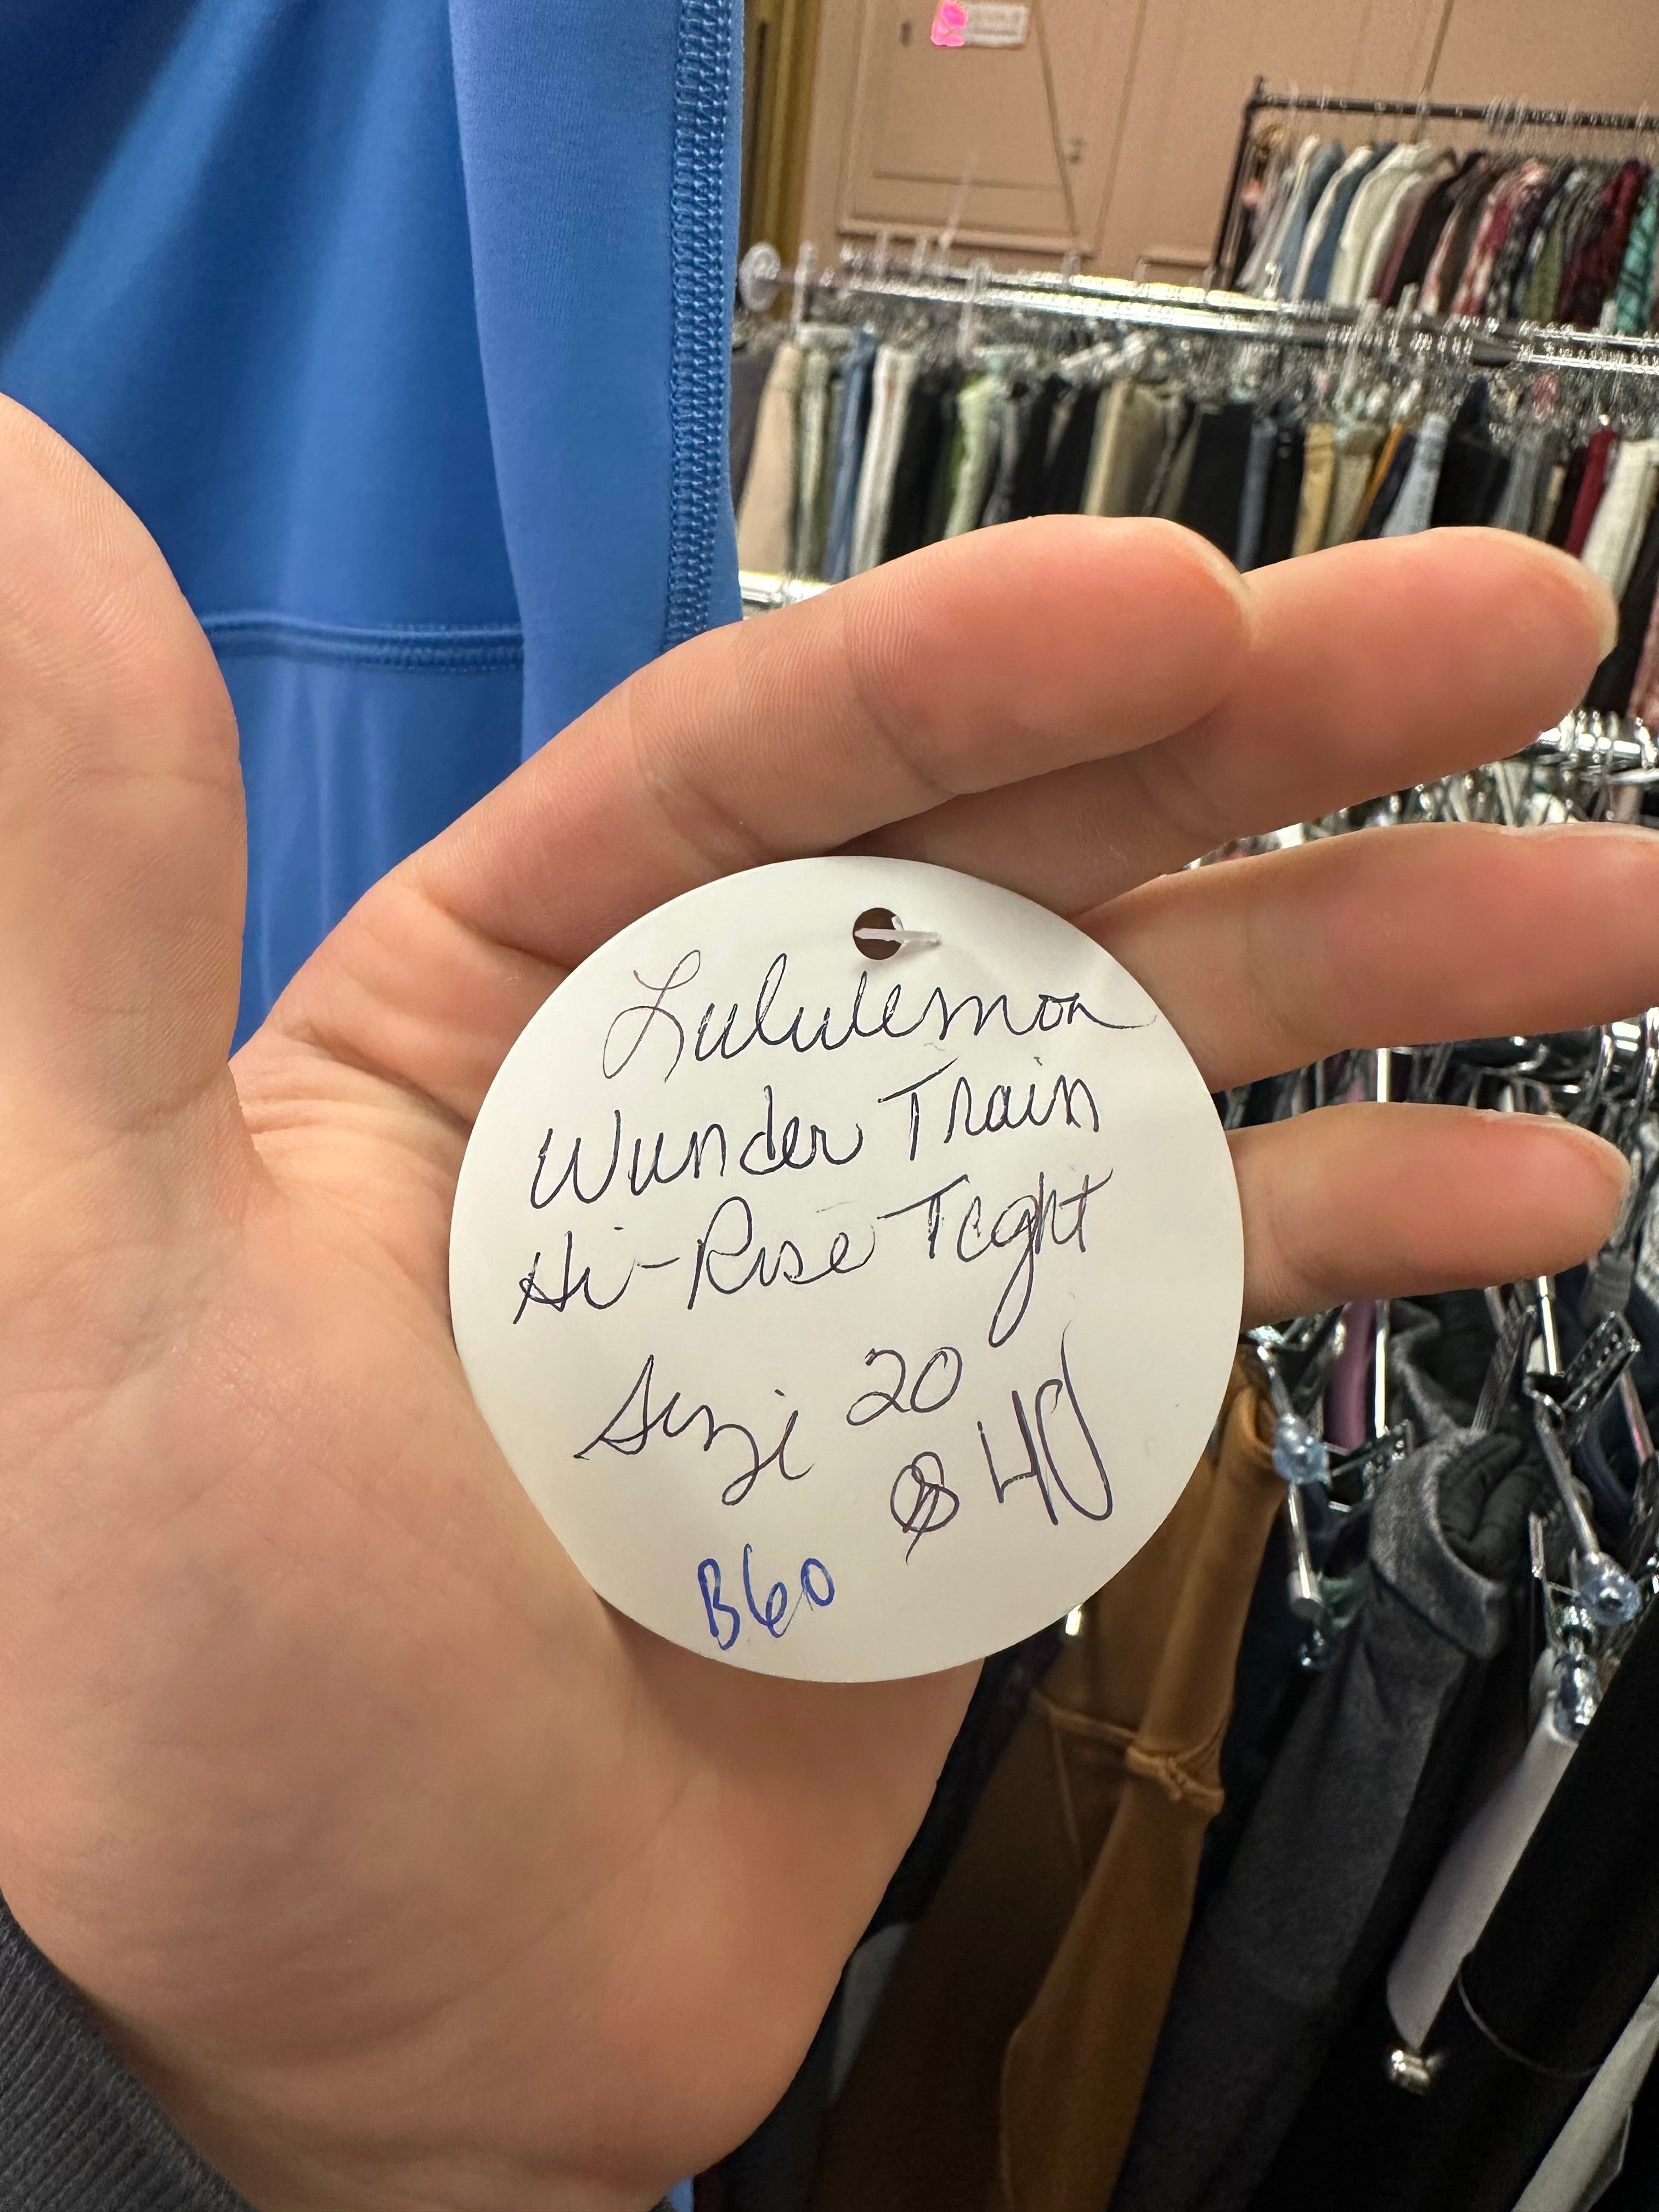 Lululemon
Wunder Train
Hi-Rise Tight
Size 20
$40
B60